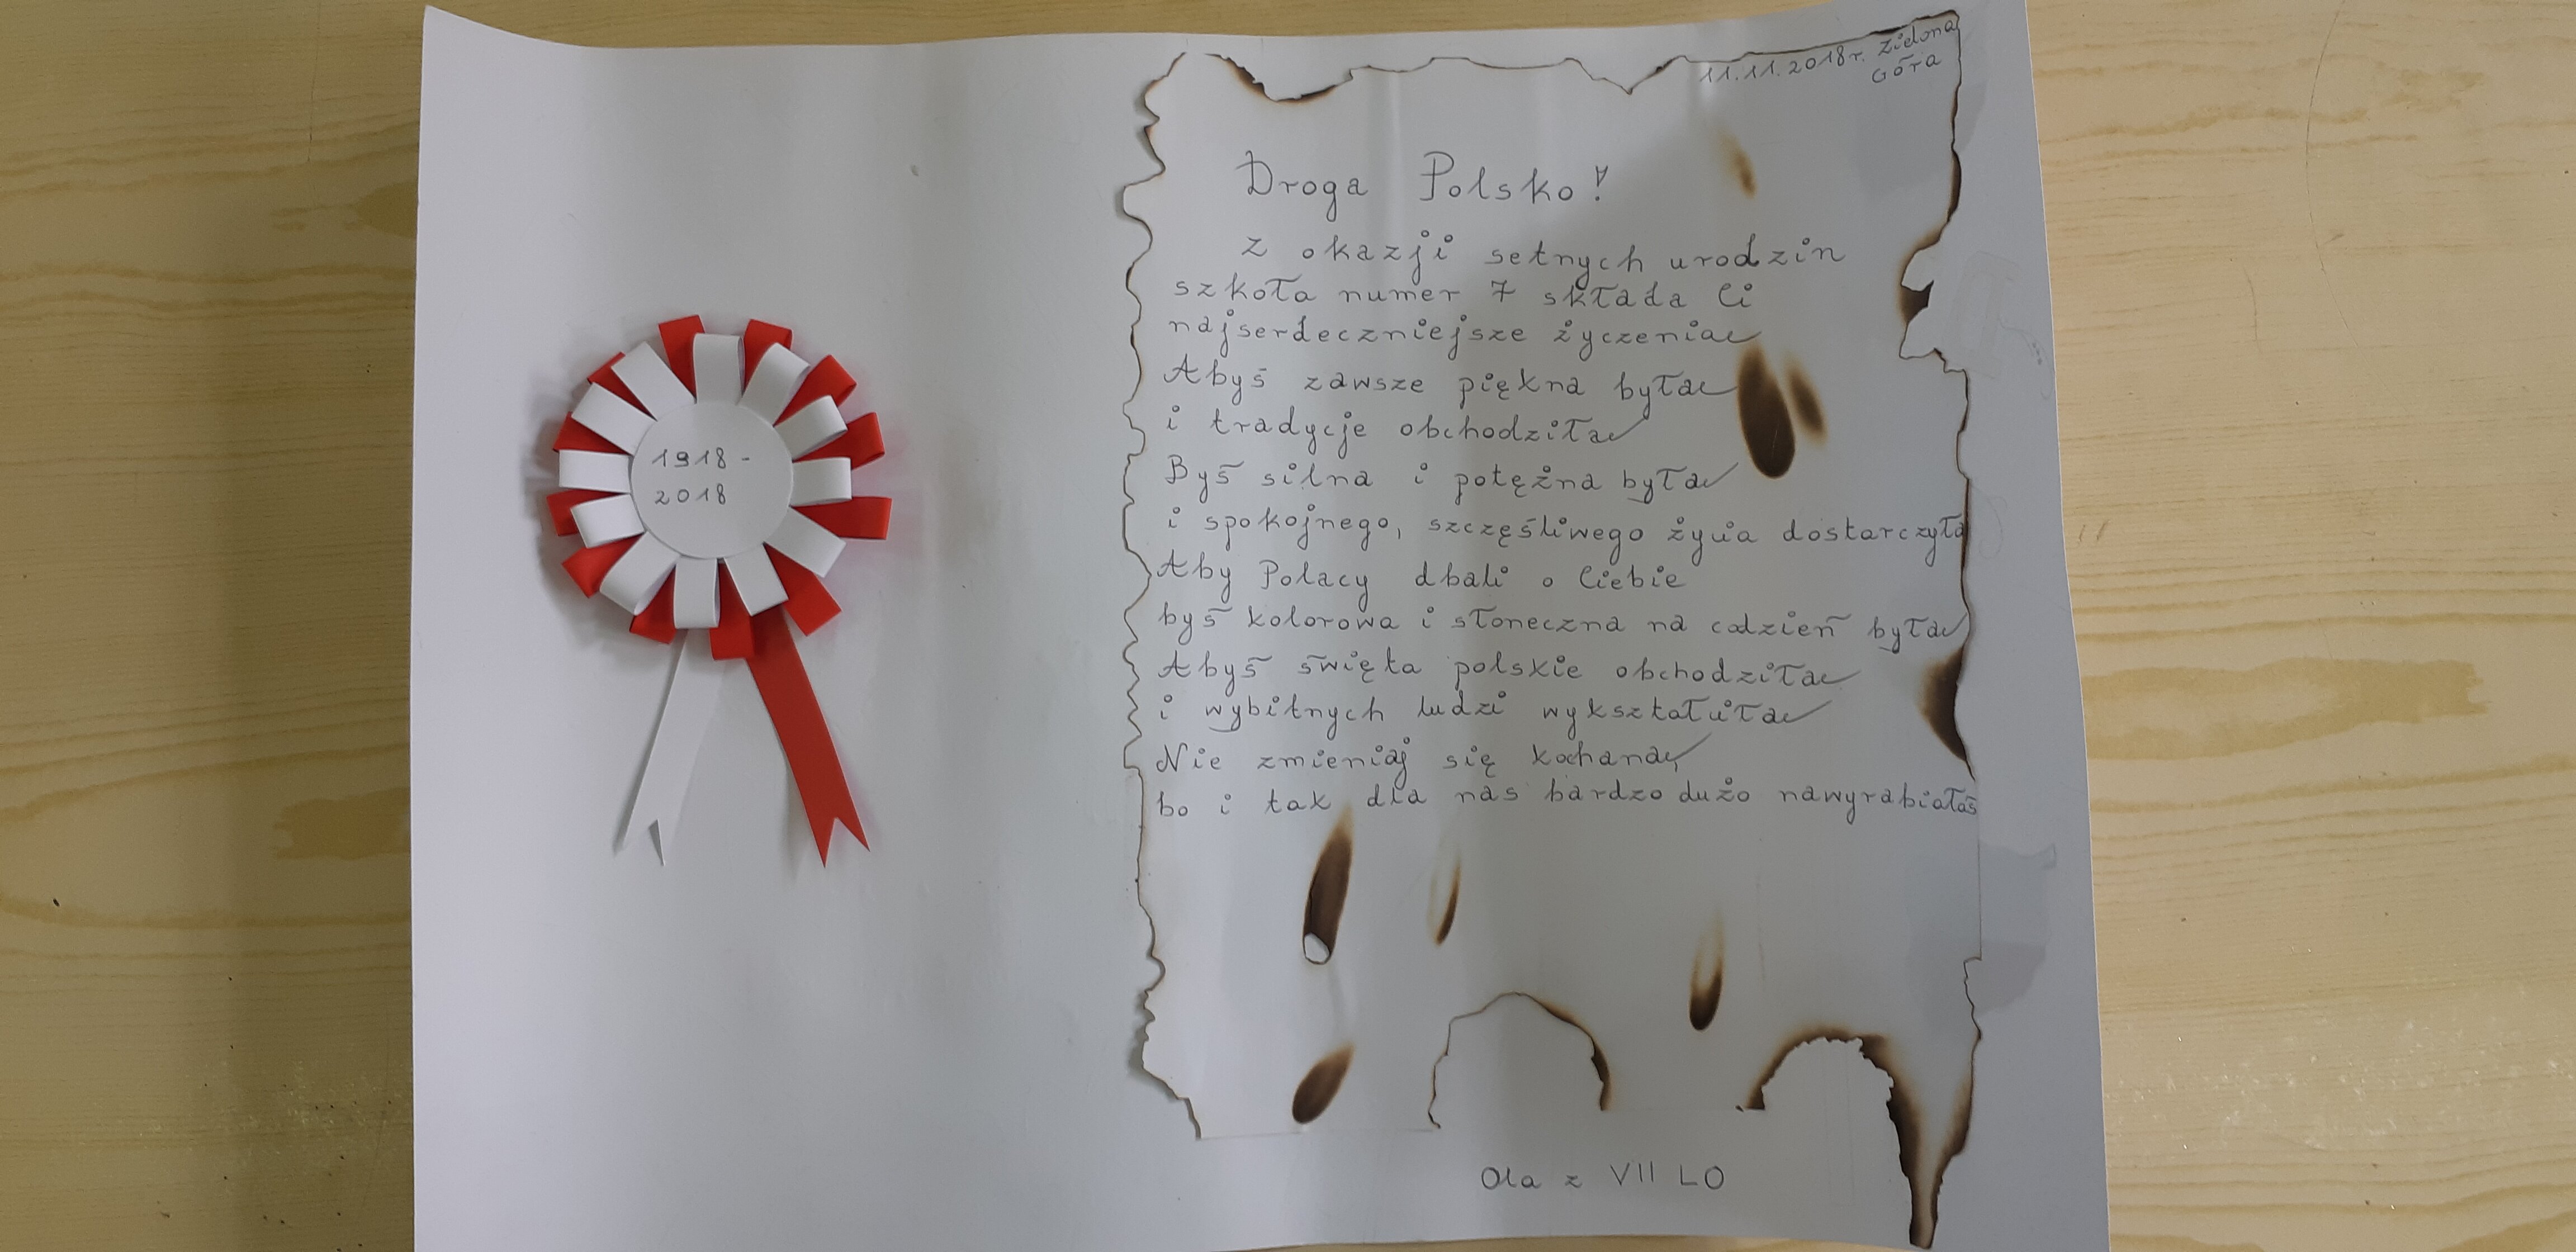 1918 -
2018
11.11.2018r. Zielona
Góra
Droga Polsko!
Z okazji setnych urodzin
szkoła numer 7 składa Ci
najserdeczniejsze życzenia
Abyś zawsze piękna była
i tradycje obchodziła
Byś silna i potężna była
i spokojnego, szczęśliwego życia dostarczyła
Aby Polacy dbali o Ciebie
byś kolorowa i słoneczna na codzień była
Abyś święta polskie obchodziła
i wybitnych ludzi wykształciła
Nie zmieniaj się kochana,
bo i tak dla nas bardzo dużo nawyrabiałaś
Ola z VII LO